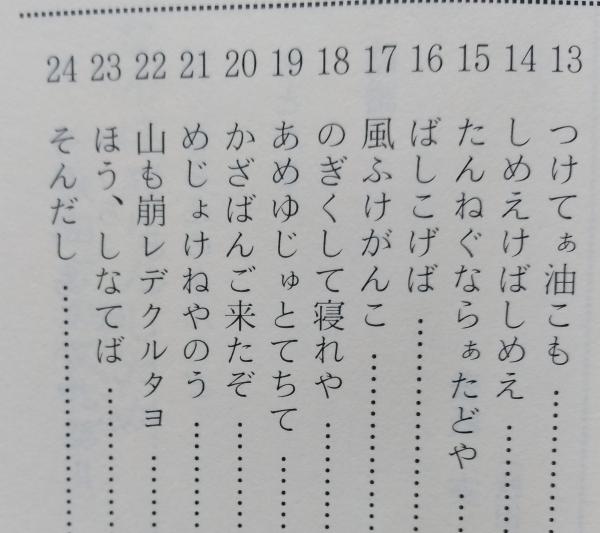 13 つけてぁ油こも
14 しめえけばしめえ
15 たんねぐならぁたどや
16 ばしこげば
17 風ふけがんこ
18 のぎくして寝れや
19 あめゆじゅとてちて
20 かざばんご来たぞ
21 めじょけねやのう
22 山も崩レデクルタヨ
23 ほう、しなてば
24 そんだし